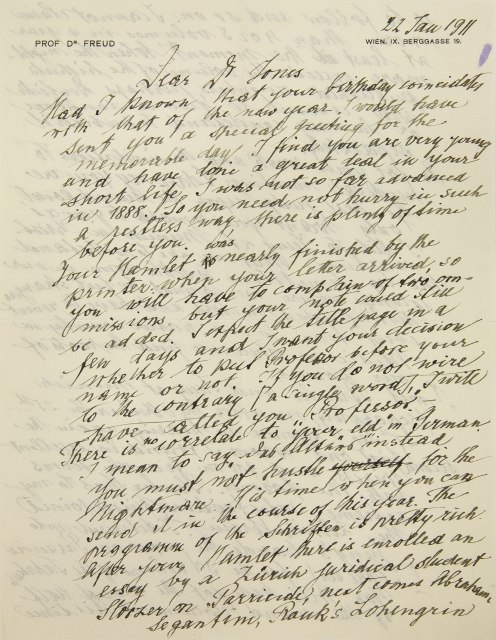 22 Jan 1911
PROF. DR. FREUD
WIEN, IX. BERGGASSE 19.
Dear Dr Jones
Had I known that your birthday coincidates
with that of the new year I would have
sent you a special greeting for the
memorable day. I find you are very young
and have done a great deal in your
short life. I was not so far advanced
in 1888. So you need not hurry in such
a restless way there is plenty of time
before you.
Your Hamlet was nearly finished by the
printer when your letter arrived, so
you will have to complain of two om-
missions but your note could still
be added. I expect the title page in a
few days and I want your decision
whether to put Professor before your
name or not. If you do not wire
to the contrary (a single word), I will
have called you Professor.
There is no correlate to "year old" in German
I mean to say "im Alter" instead
you must not hustle yourself for the
Nightmare. It is time when you can
send it in the course of this year. The
programm of the Schriften is pretty rich
After your Hamlet there is enrolled an
essay by a Zürich juridical student
Storzer on Parricide, next comes Abrahams
Segantini, Rank's Lohengrin